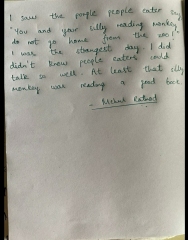 I saw the purple people eater say
"You and your silly reading monkey
do not go home from the zoo!"
I was the strangest day. I did
didn't know people eaters could
talk so well. At least that silly
monkey was reading a good book.